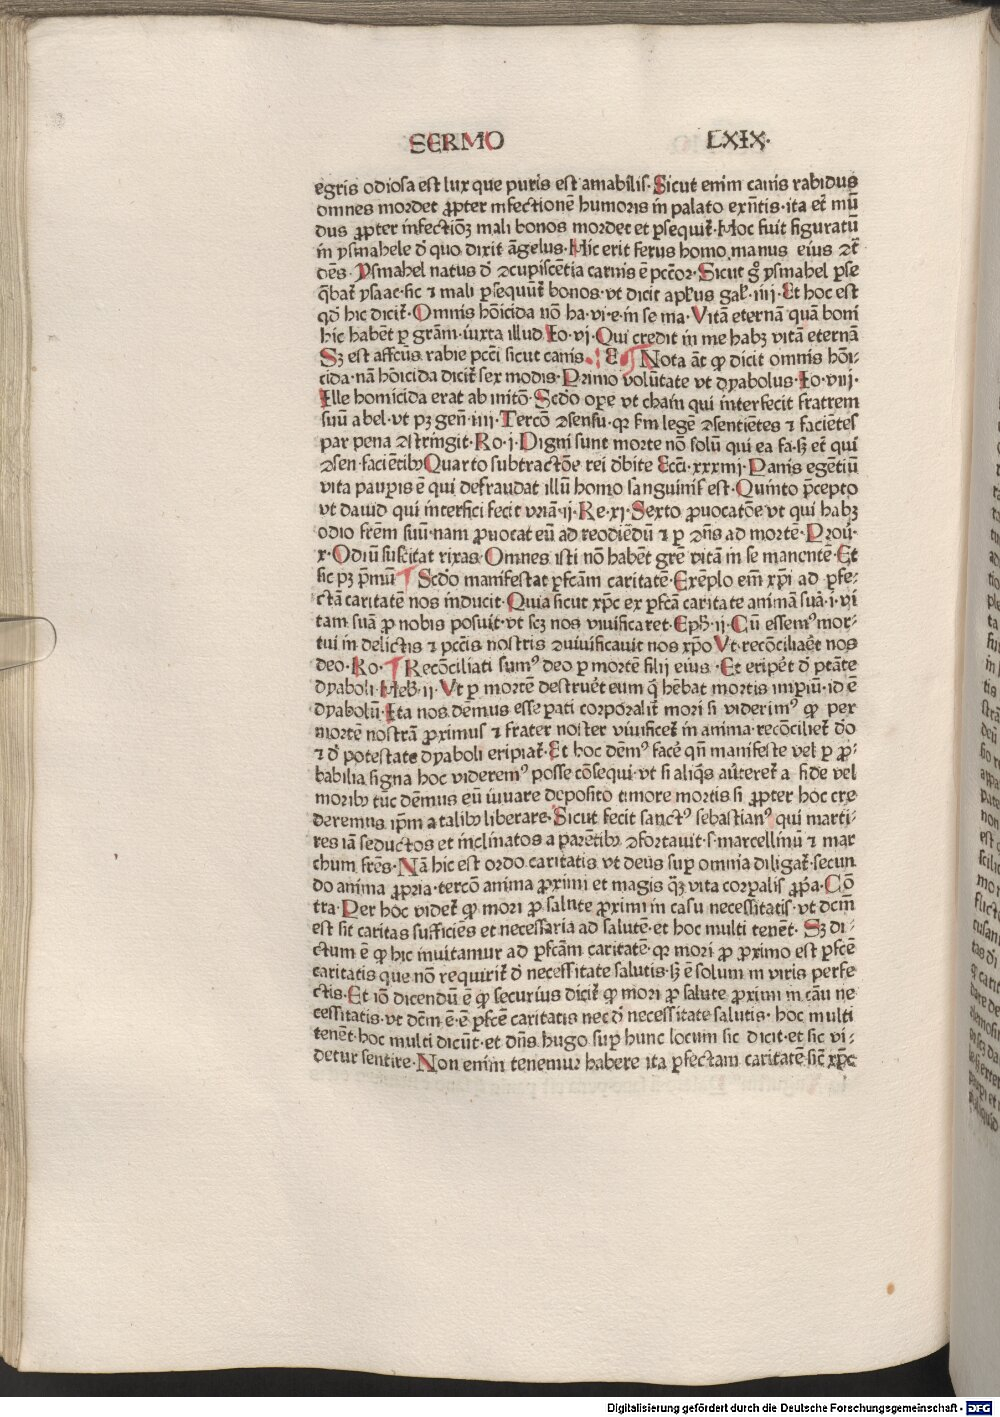 SERMO LXIX·
egris odiosa est lux que puris est amabilis· Sicut enim canis rabidus
omnes mordet ꝓpter infectionē humoris in palato exñtis· ita et̄ mū
dus ꝓpter infectiōꝫ mali bonos mordet et ꝑsequit̄· Hoc fuit figuratū
in ysmahele d̄ quo dixit āgelus· Hic erit ferus homo manus eius ꝯt̄
oēs· Ysmahel natus d̄ ꝯcupiscētia carnis ē pc̄cōr· Sicut gͦ ysmahel ꝑse
q̄bat̄ ysaac· sic ⁊ mali ꝑsequūt̄ bonos· vt dicit apl̄us gal̄· iiij· Et hoc est
qd̄ hic dicit̄· Omnis hōicida nō ha· vi· e· in se ma· Vitā eternā quā boni
hic habēt ꝑ grām· iuxta illud Io· vi· Qui credit in me habꝫ vitā eternā
Sꝫ est affcus rabie pcc̄i sicut canis· E ¶ Nota āt ꝙ dicit omnis hōi-
cida· nā hōicida dicit̄ sex modis· Primo volūtate vt dyabolus· Io· viij·
Ille homicida erat ab initō· Scd̄o oꝑe vt chain qui interfecit fratrem
suū abel· vt pꝫ gen̄· iiij· Tercō ꝯsensu· qꝛ ẜm legē ꝯsentiētes ⁊ faciētes
par pena ꝯstringit· Ro· i· Digni sunt morte nō solū qui ea fa· sꝫ et̄ qui
ꝯsen· faciētibꝰ Quarto subtractōe rei d̄bite Ecc̄i· xxxiiij· Panis egētiū
vita pauꝑis ē qui defraudat illū homo sanguinis est· Quinto p̄cepto
vt dauid qui interfici fecit vriā· ij· Re· xj· Sexto ꝓuocatōe vt qui habꝫ
odio frēm suū· nam ꝓuocat eū ad reodiēdū ⁊ ꝑ ꝯn̄s ad mortē· Prou̇·
x· Odiū suscitat rixas· Omnes isti nō habēt grē vitā in se manentē· Et
sic pꝫ p̄mū ¶ Scd̄o manifestat ꝑfcām caritatē· Exēplo em̄ xp̄i ad ꝑfe-
ctā caritatē nos inducit· Quia sicut xp̄c ex ꝑfcā caritate animā suā· i· vi
tam suā ꝓ nobis posuit· vt scꝫ nos viuificaret· Eph̄· ij· Cū essemꝰ mor-
tui in delictis ⁊ pcc̄is nostris ꝯuiuificauit nos xp̄o Vt· recōciliaret nos
deo· Ro· ¶ Recōciliati sumꝰ deo ꝑ mortē filij eius· Et eripet̄ d̄ ptāte
dyaboli· Heb̄· ij· Vt ꝑ mortē destrueret eum q̄ hēbat mortis imꝑiū· id ē
dyabolū· Ita nos dēmus esse pati corporalit̄ mori si viderimꝰ ꝙ per
mortē nostrā ꝓximus ⁊ frater noster viuificet̄ in anima· recōciliet̄ d̄o
⁊ d̄ potestate dyaboli eripiat̄· Et hoc dēmꝰ facē qn̄ manifeste vel ꝑ ꝓ-
babilia signa hoc videremꝰ posse cōsequi· vt si aliq̄s aut̄eret̄ a fide vel
moribꝰ tūc dēmus eū iuuare deposito timore mortis si ꝓpter hoc cre
deremus ip̄m a talibꝰ liberare· Sicut fecit sanctꝰ sebastianꝰ qui marti-
res iā seductos et inclinatos a parētibꝰ ꝯfortauit· s· marcellinū ⁊ mar
chum frēs· Nā hic est ordo caritatis vt deus suꝑ omnia diligat̄· secun
do anima ꝓpria· tercō anima ꝓximi et magis qꝫ vita corꝑalis ꝓp̄a· Cō
tra· Per hoc videt̄ ꝙ mori ꝓ salute ꝓximi in casu necessitatis· vt dcm̄
est sit caritas sufficiēs et necessaria ad salutē· et hoc multi tenēt· Sꝫ di-
ctum ē ꝙ hic inuitamur ad ꝑfcām caritatē· qꝛ mori ꝓ ꝓximo est ꝑfcē
caritatis que nō requirit̄ d̄ necessitate salutis· sꝫ ē solum in viris perfe
ctis· Et iō dicendū ē ꝙ securius dicit̄ ꝙ mori ꝓ salute ꝓximi in cāu ne
cessitatis· vt dc̄m ē· ē ꝑfcē caritatis nec d̄ necessitate salutis· hoc multi
tenēt· hoc multi dicūt· et dn̄s hugo suꝑ hunc locum sic dicit· et sic vi-
detur sentire· Non enim tenemur habere ita ꝑfectam caritatē sic̄ xp̄c
Digitalisierung gefördert durch die Deutsche Forschungsgemeinschaft - DFG